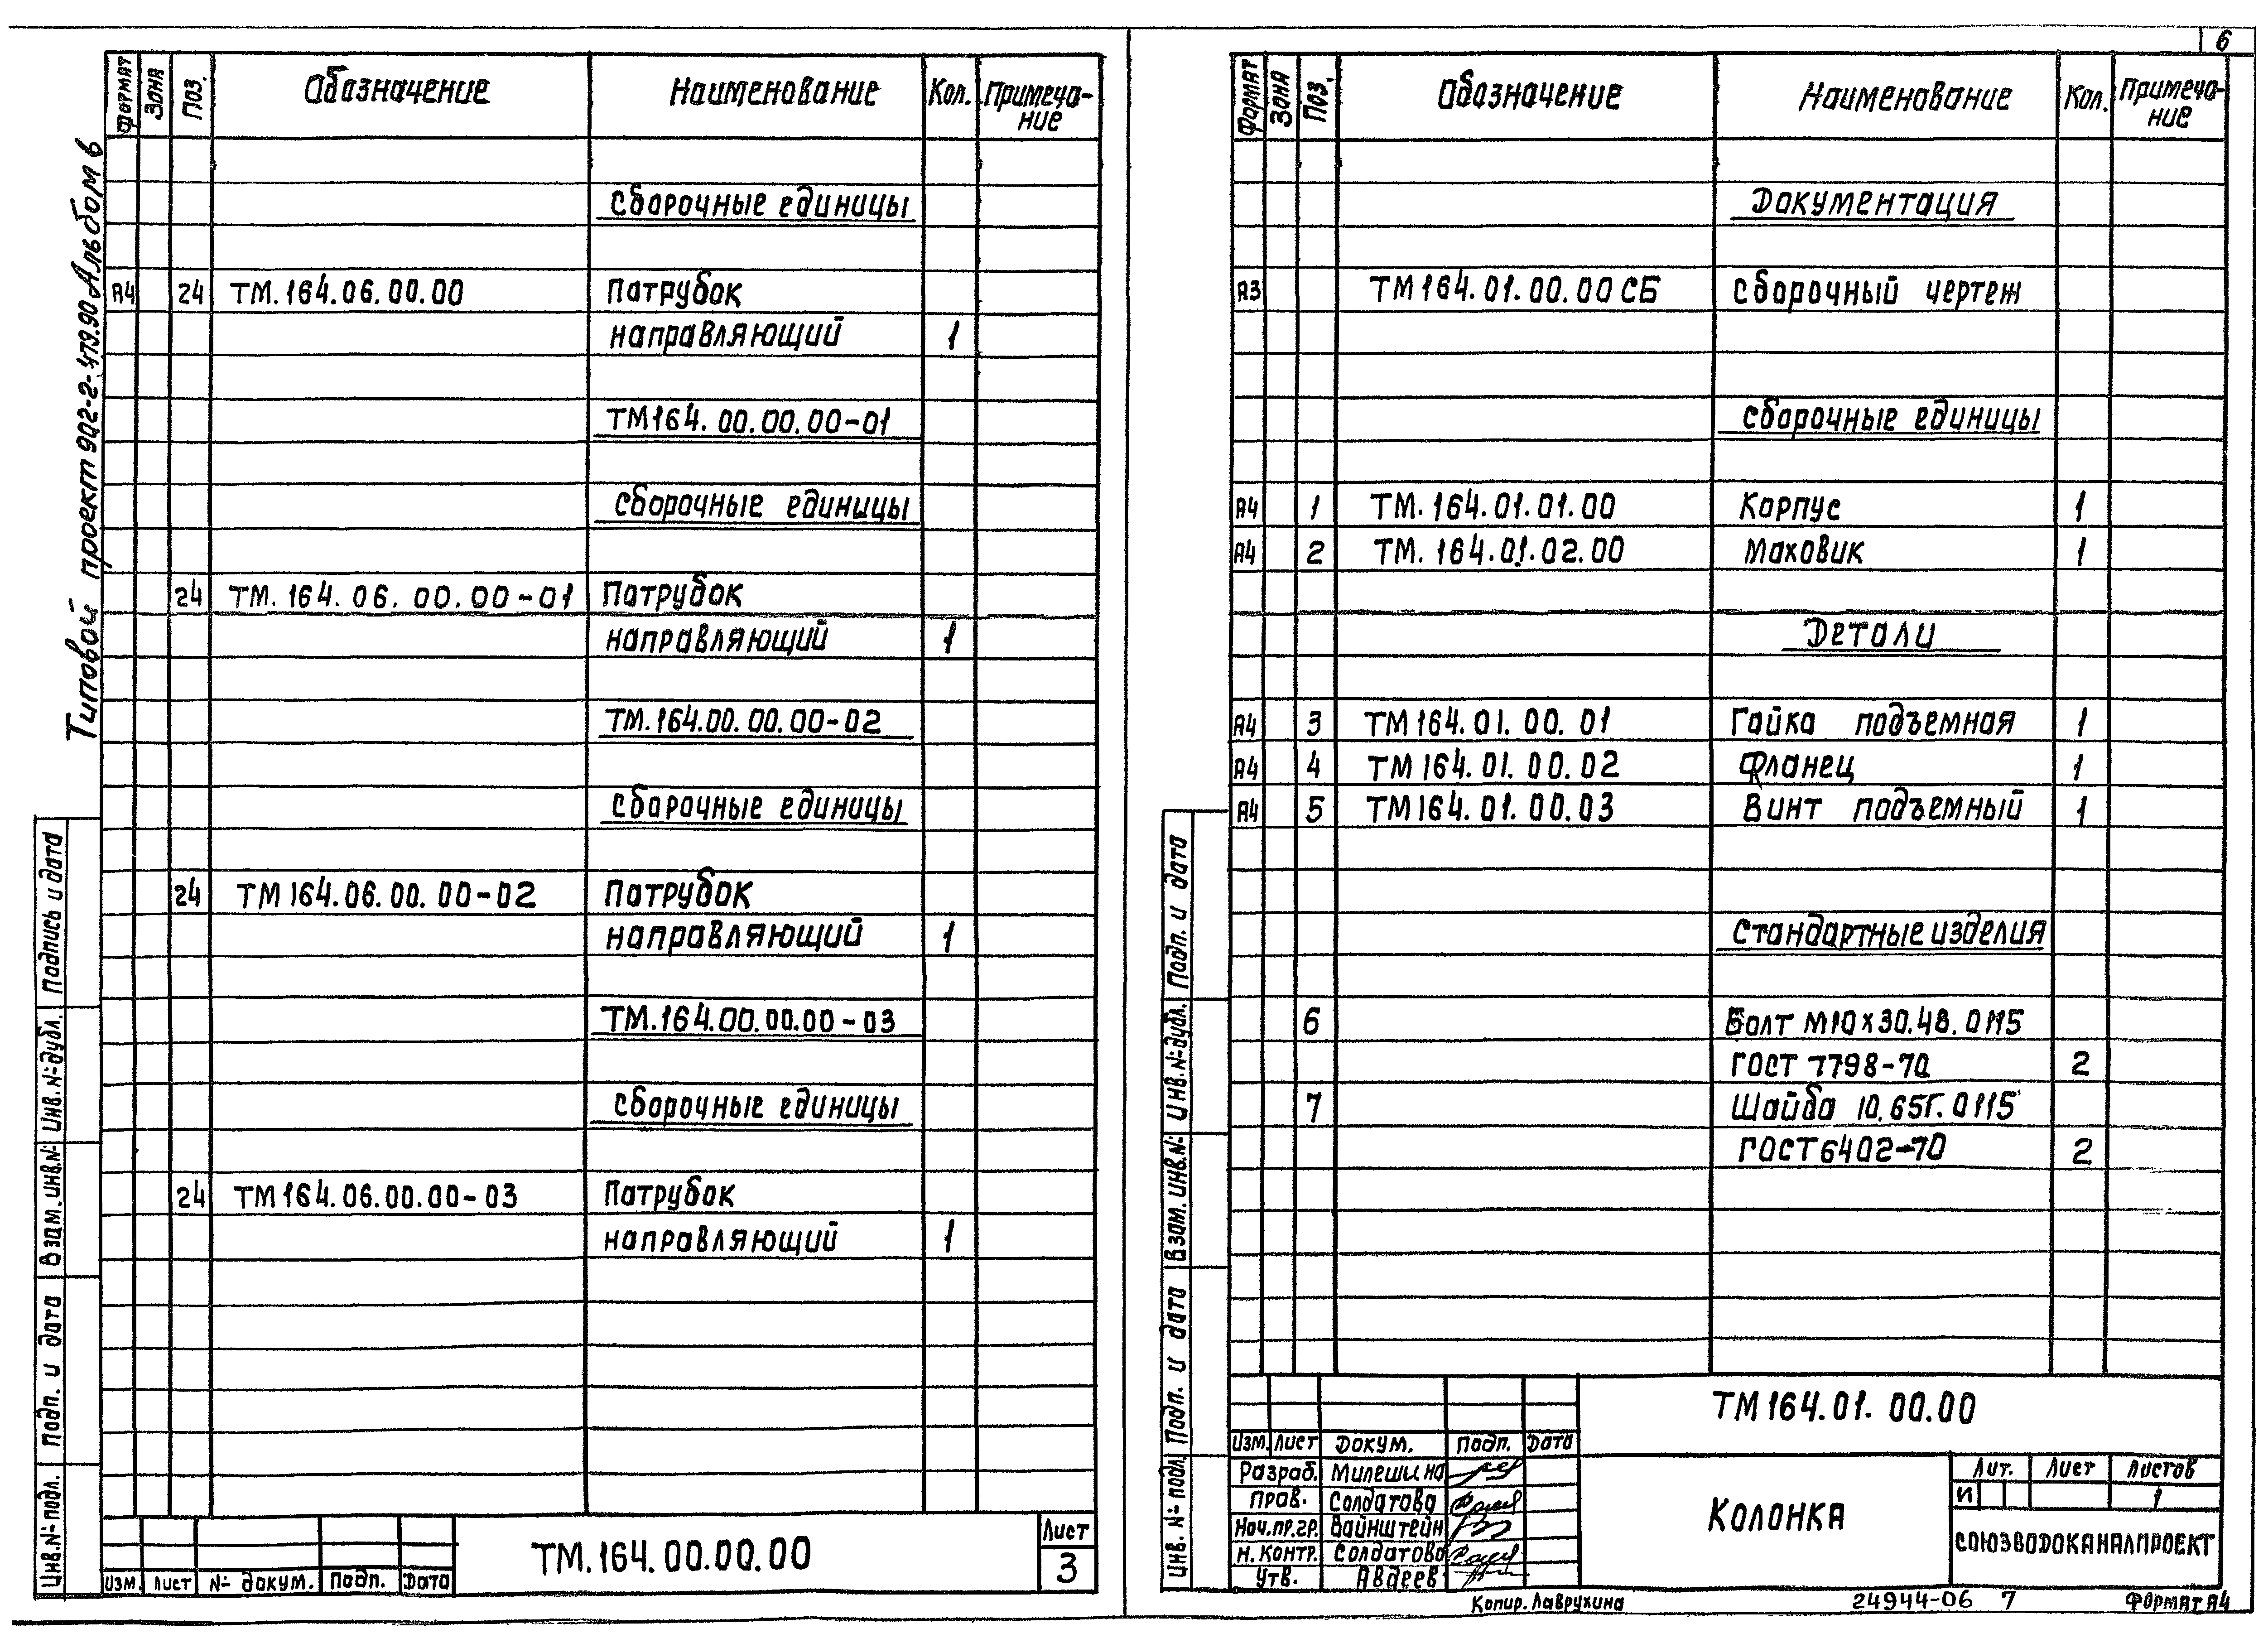 6
Типовой проект 902-2-479.90 Альбом 6
Формат Зона Поз. Обозначение Наименование Кол. Примеча-
ние
Сборочные единицы
А4 24 ТМ.164.06.00.00 Патрубок
направляющий 1
ТМ164.00.00.00-01
Сборочные единицы
24 ТМ.164.06.00.00-01 Патрубок
направляющий 1
ТМ.164.00.00.00-02
Сборочные единицы
24 ТМ164.06.00.00-02 Патрубок
направляющий 1
ТМ.164.00.00.00-03
Сборочные единицы
24 ТМ164.06.00.00-03 Патрубок
направляющий 1
Подпись и дата
Инв.№дубл.
Взам.инв.№
Подп. и дата
Инв.№подл.
Изм. Лист № докум. Подп. Дата
ТМ.164.00.00.00
Лист
3
Формат Зона Поз. Обозначение Наименование Кол. Примеча-
ние
Документация
А3 ТМ164.01.00.00СБ Сборочный чертеж
Сборочные единицы
А4 1 ТМ.164.01.01.00 Корпус 1
А4 2 ТМ.164.01.02.00 Маховик 1
Детали
А4 3 ТМ164.01.00.01 Гайка подъемная 1
А4 4 ТМ164.01.00.02 Фланец 1
А4 5 ТМ164.01.00.03 Винт подъемный 1
Стандартные изделия
6 Болт М10х30.48.0115
ГОСТ 7798-70 2
7 Шайба 10.65Г.0115
ГОСТ6402-70 2
Подп. и дата
Инв.№дубл.
Взам.инв.№
Подп. и дата
Инв.№подл.
ТМ164.01.00.00
Изм. Лист Докум. Подп. Дата
Разраб. Милешина
Пров. Солдатова
Нач.пр.гр. Вайнштейн
Н.контр. Солдатова
Утв. Авдеев
Колонка
Лит. Лист Листов
И 1
СОЮЗВОДОКАНАЛПРОЕКТ
Копир. Лаврухина 24944-06 7 Формат А4